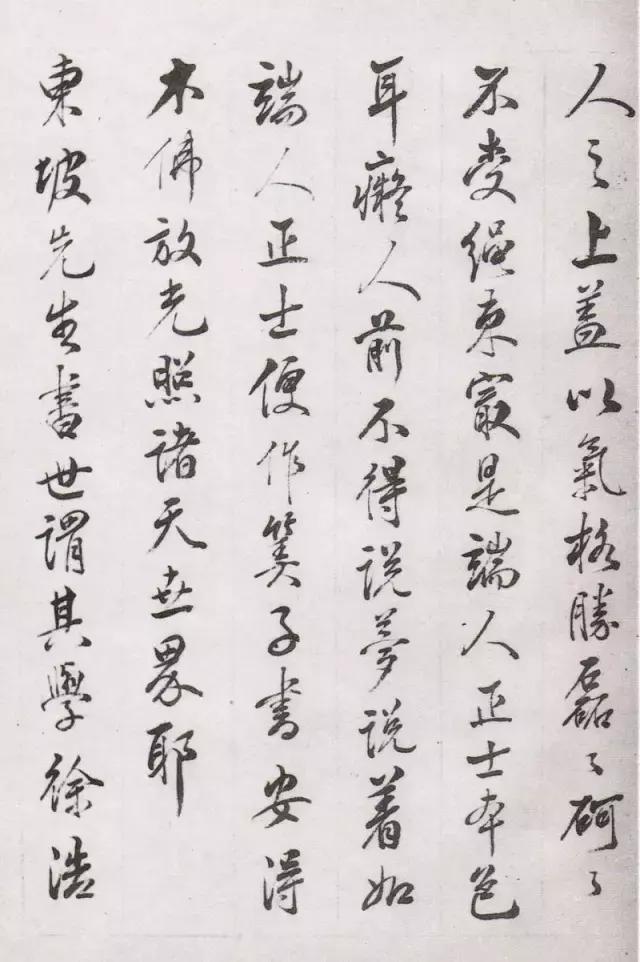 人之上蓋以氣格勝磊〻砢〻
不受繩束最是端人正士本色
耳癡人前不得説夢説着如
端人正士便作筭子書安得
木佛放光照諸天世界耶
東坡先生書世謂其學徐浩